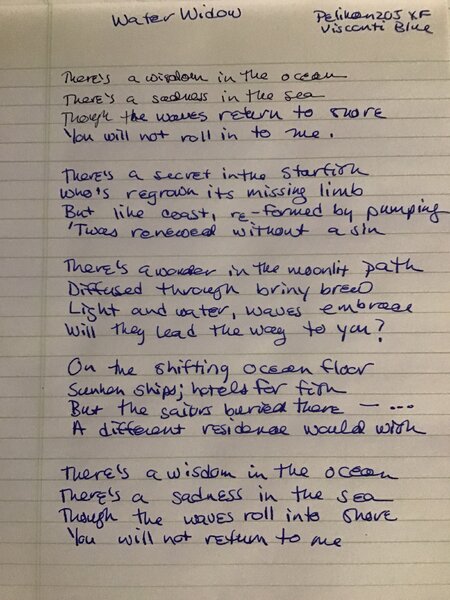 Water Widow
Pelikan 205 XF
Visconti Blue
There's a wisdom in the ocean
There's a sadness in the sea
Though the waves return to shore
You will not roll in to me.
There's a secret in the starfish
Who's regrown its missing limb
But like coast, re-formed by pumping
'Twas renewed without a sin
There's a wonder in the moonlit path
Diffused through briny brew
Light and water, waves embrace
Will they lead the way to you?
On the shifting ocean floor
Sunken ships; hotels for fish
But the sailors buried there — ...
A different residence would wish
There's a wisdom in the ocean
There's a sadness in the sea
Though the waves roll into shore
You will not return to me